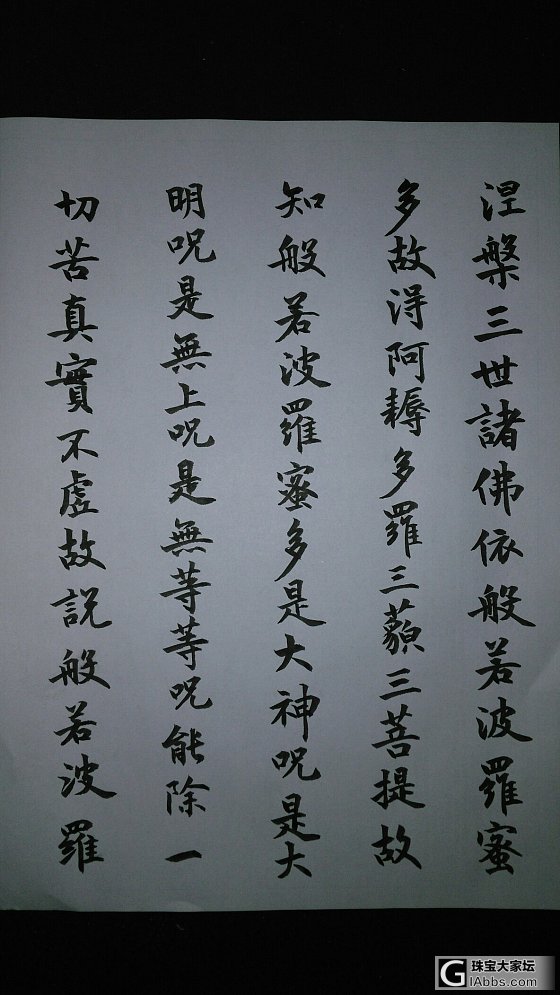 涅槃三世諸佛依般若波羅蜜
多故得阿耨多羅三藐三菩提故
知般若波羅蜜多是大神呪是大
明呪是無上呪是無等等呪能除一
切苦真實不虛故説般若波羅
珠宝大家坛
GIAbbs.com